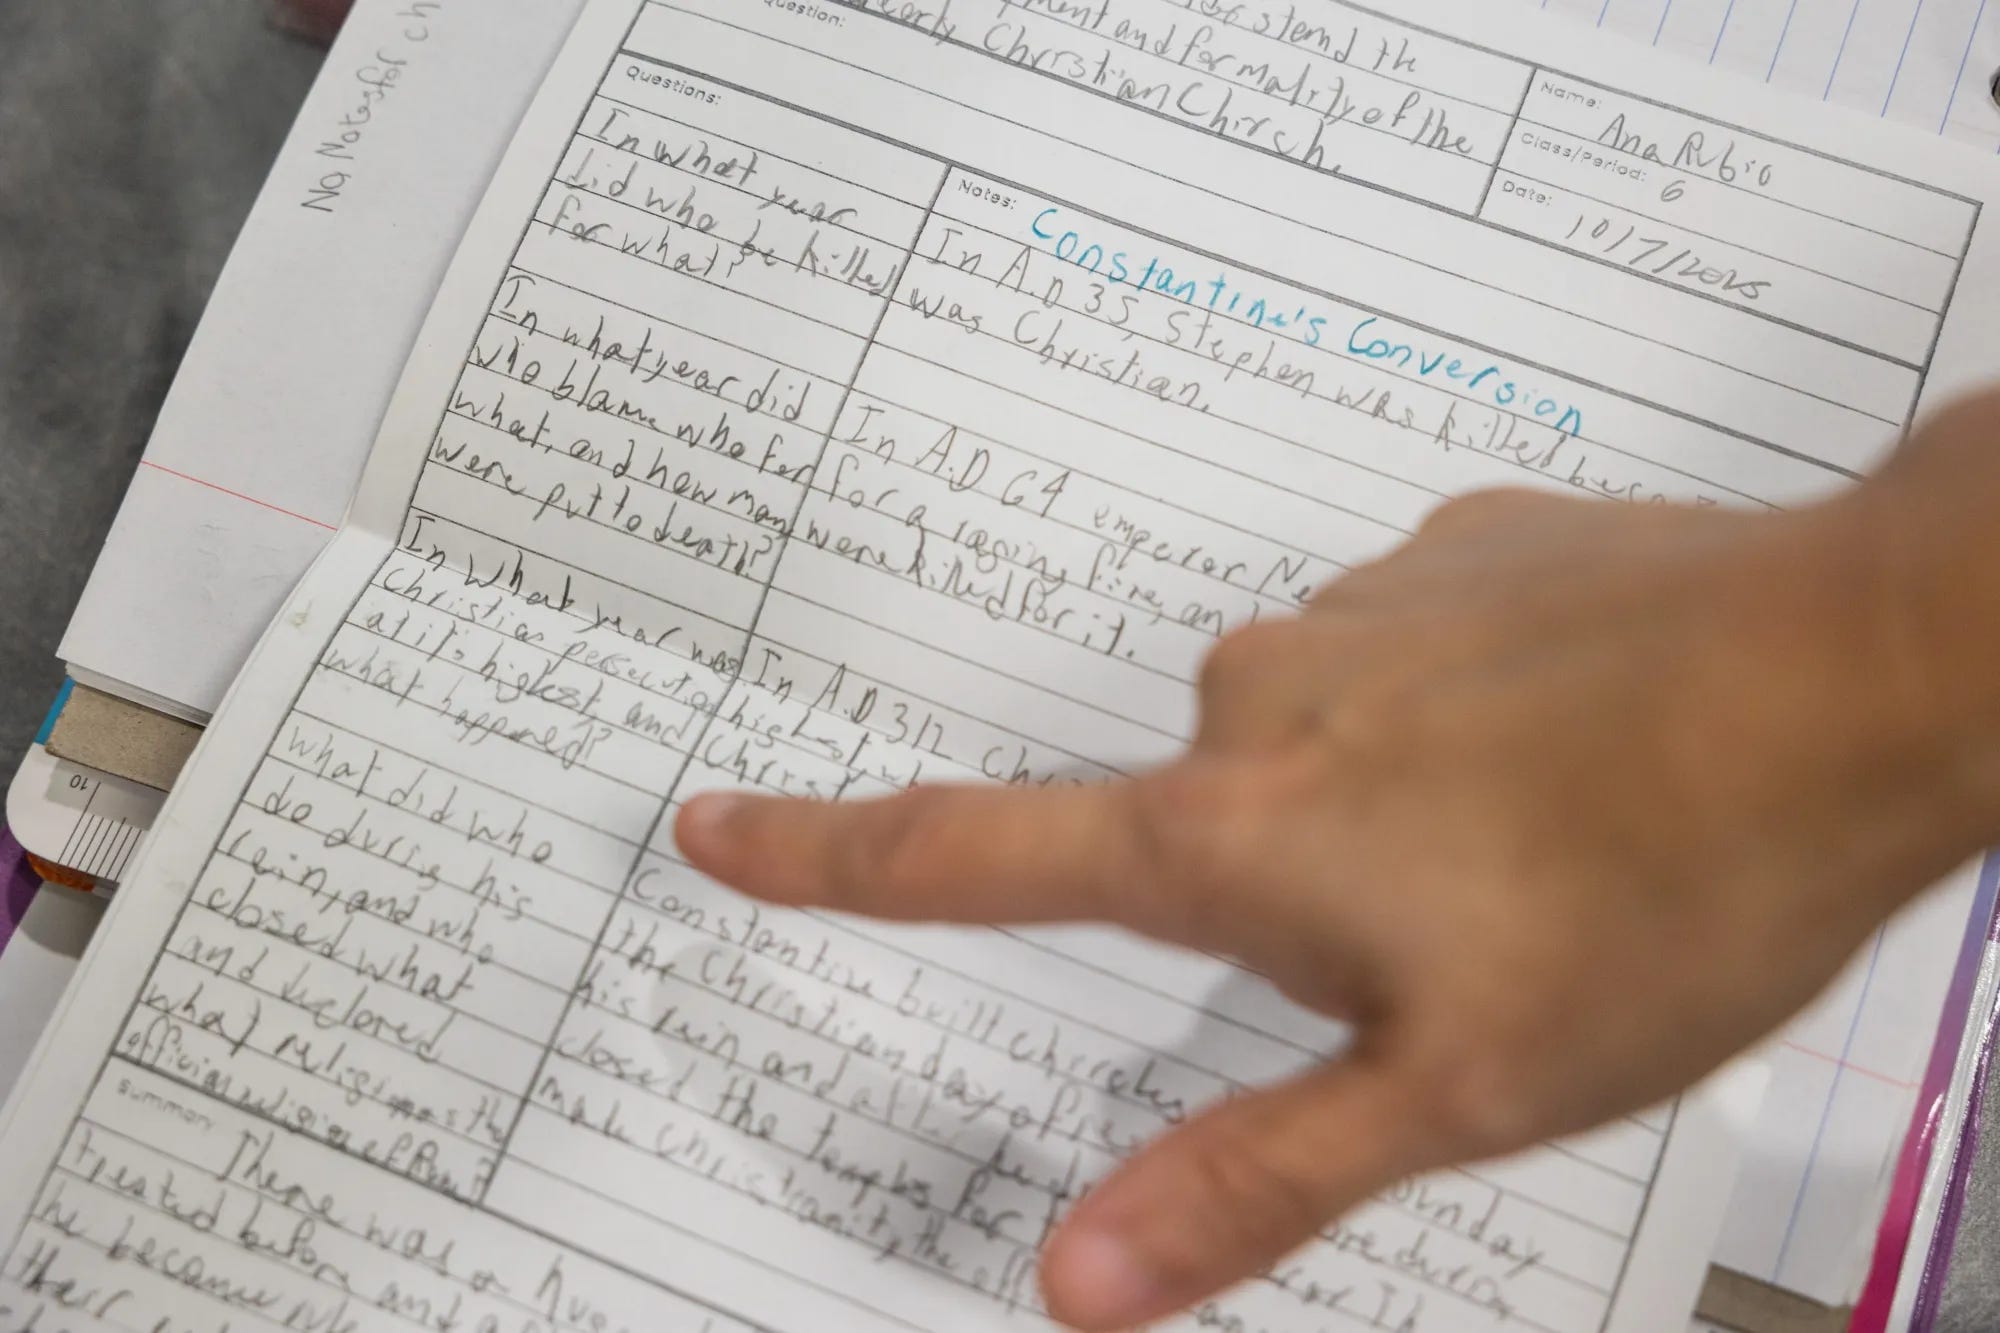 No Notes for ch
stend the
ment and formality of the
early Christian Chirsch.
Question:
Name:
Ana Rubio
Class/Period: 6
Date: 10/7/2025
Questions:
In what year
did who be killed
for what?
In what year did
who blame who for
what, and how many
were put to death?
In what year was
Christian persecution
at it's highest and
what happened?
what did who
do during his
rein, and who
closed what
and declored
what religion as the
official religion of Rome?
Notes: Constantine's Conversion
In A.D 35, Stephen was killed beca
was Christian.
In A.D 64 emperor Ne
for a raging fire, an
were killed for it.
In A.D 312 Chri
highest wh
Christ
Constantine built chirchs
the Christian day of res
his rein and after
closed the temples for
make Christianity the off
Summary
There was a hug
treated before and a
he became
their